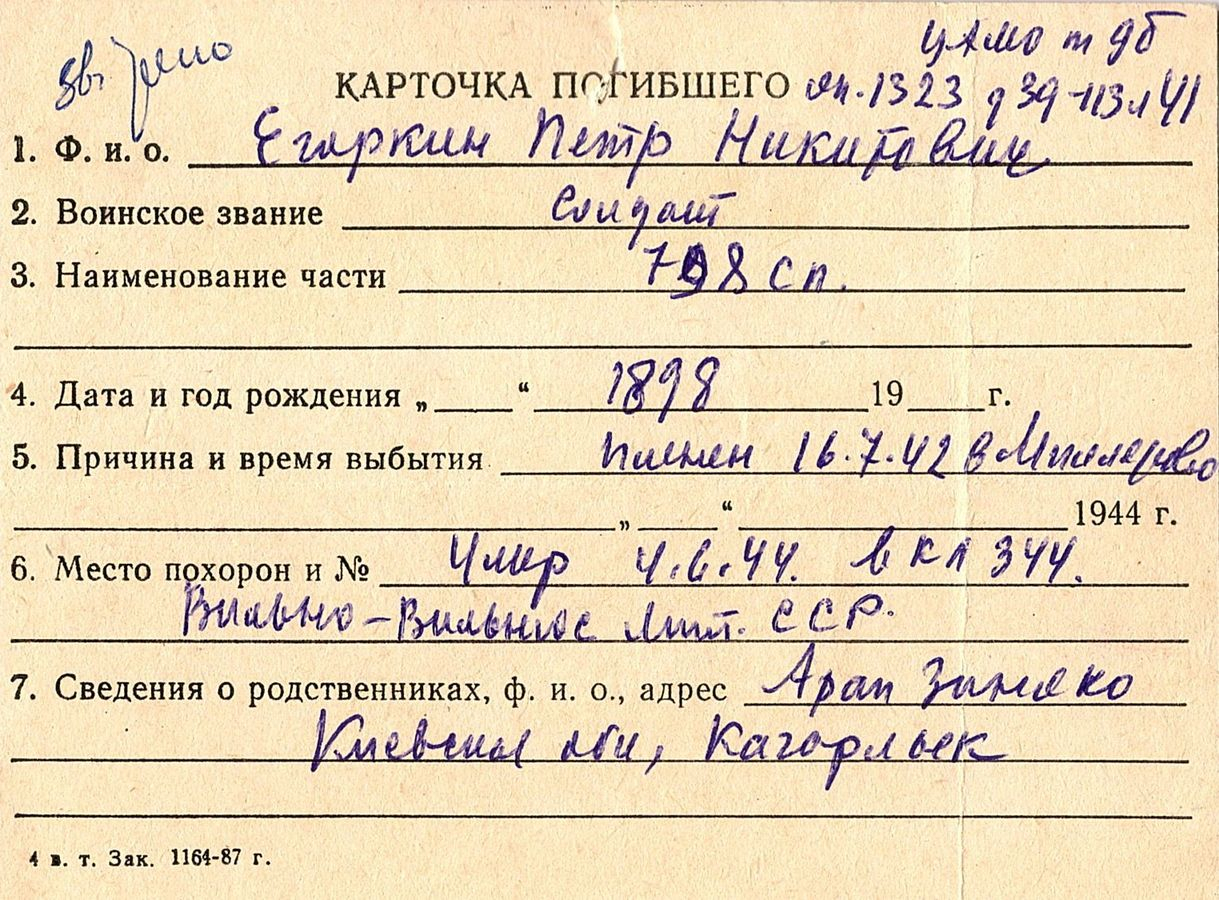 ЦАМО т 9б
КАРТОЧКА ПОГИБШЕГО оп. 1323 д 39-113 л 41
1. Ф. и. о. Егаркин Петр Никитович
2. Воинское звание солдат
3. Наименование части 798 сп.
4. Дата и год рождения „ “ 1898 19 г.
5. Причина и время выбытия пленен 16.7.42 в Миллерово
„ “ 1944 г.
6. Место похорон и № Умер 4.6.44. в кл 344.
Вильно-Вильнюс Лит. ССР.
7. Сведения о родственниках, ф. и. о., адрес Арап
Киевская обл, Кагарлыек
4 в. т. Зак. 1164-87 г.